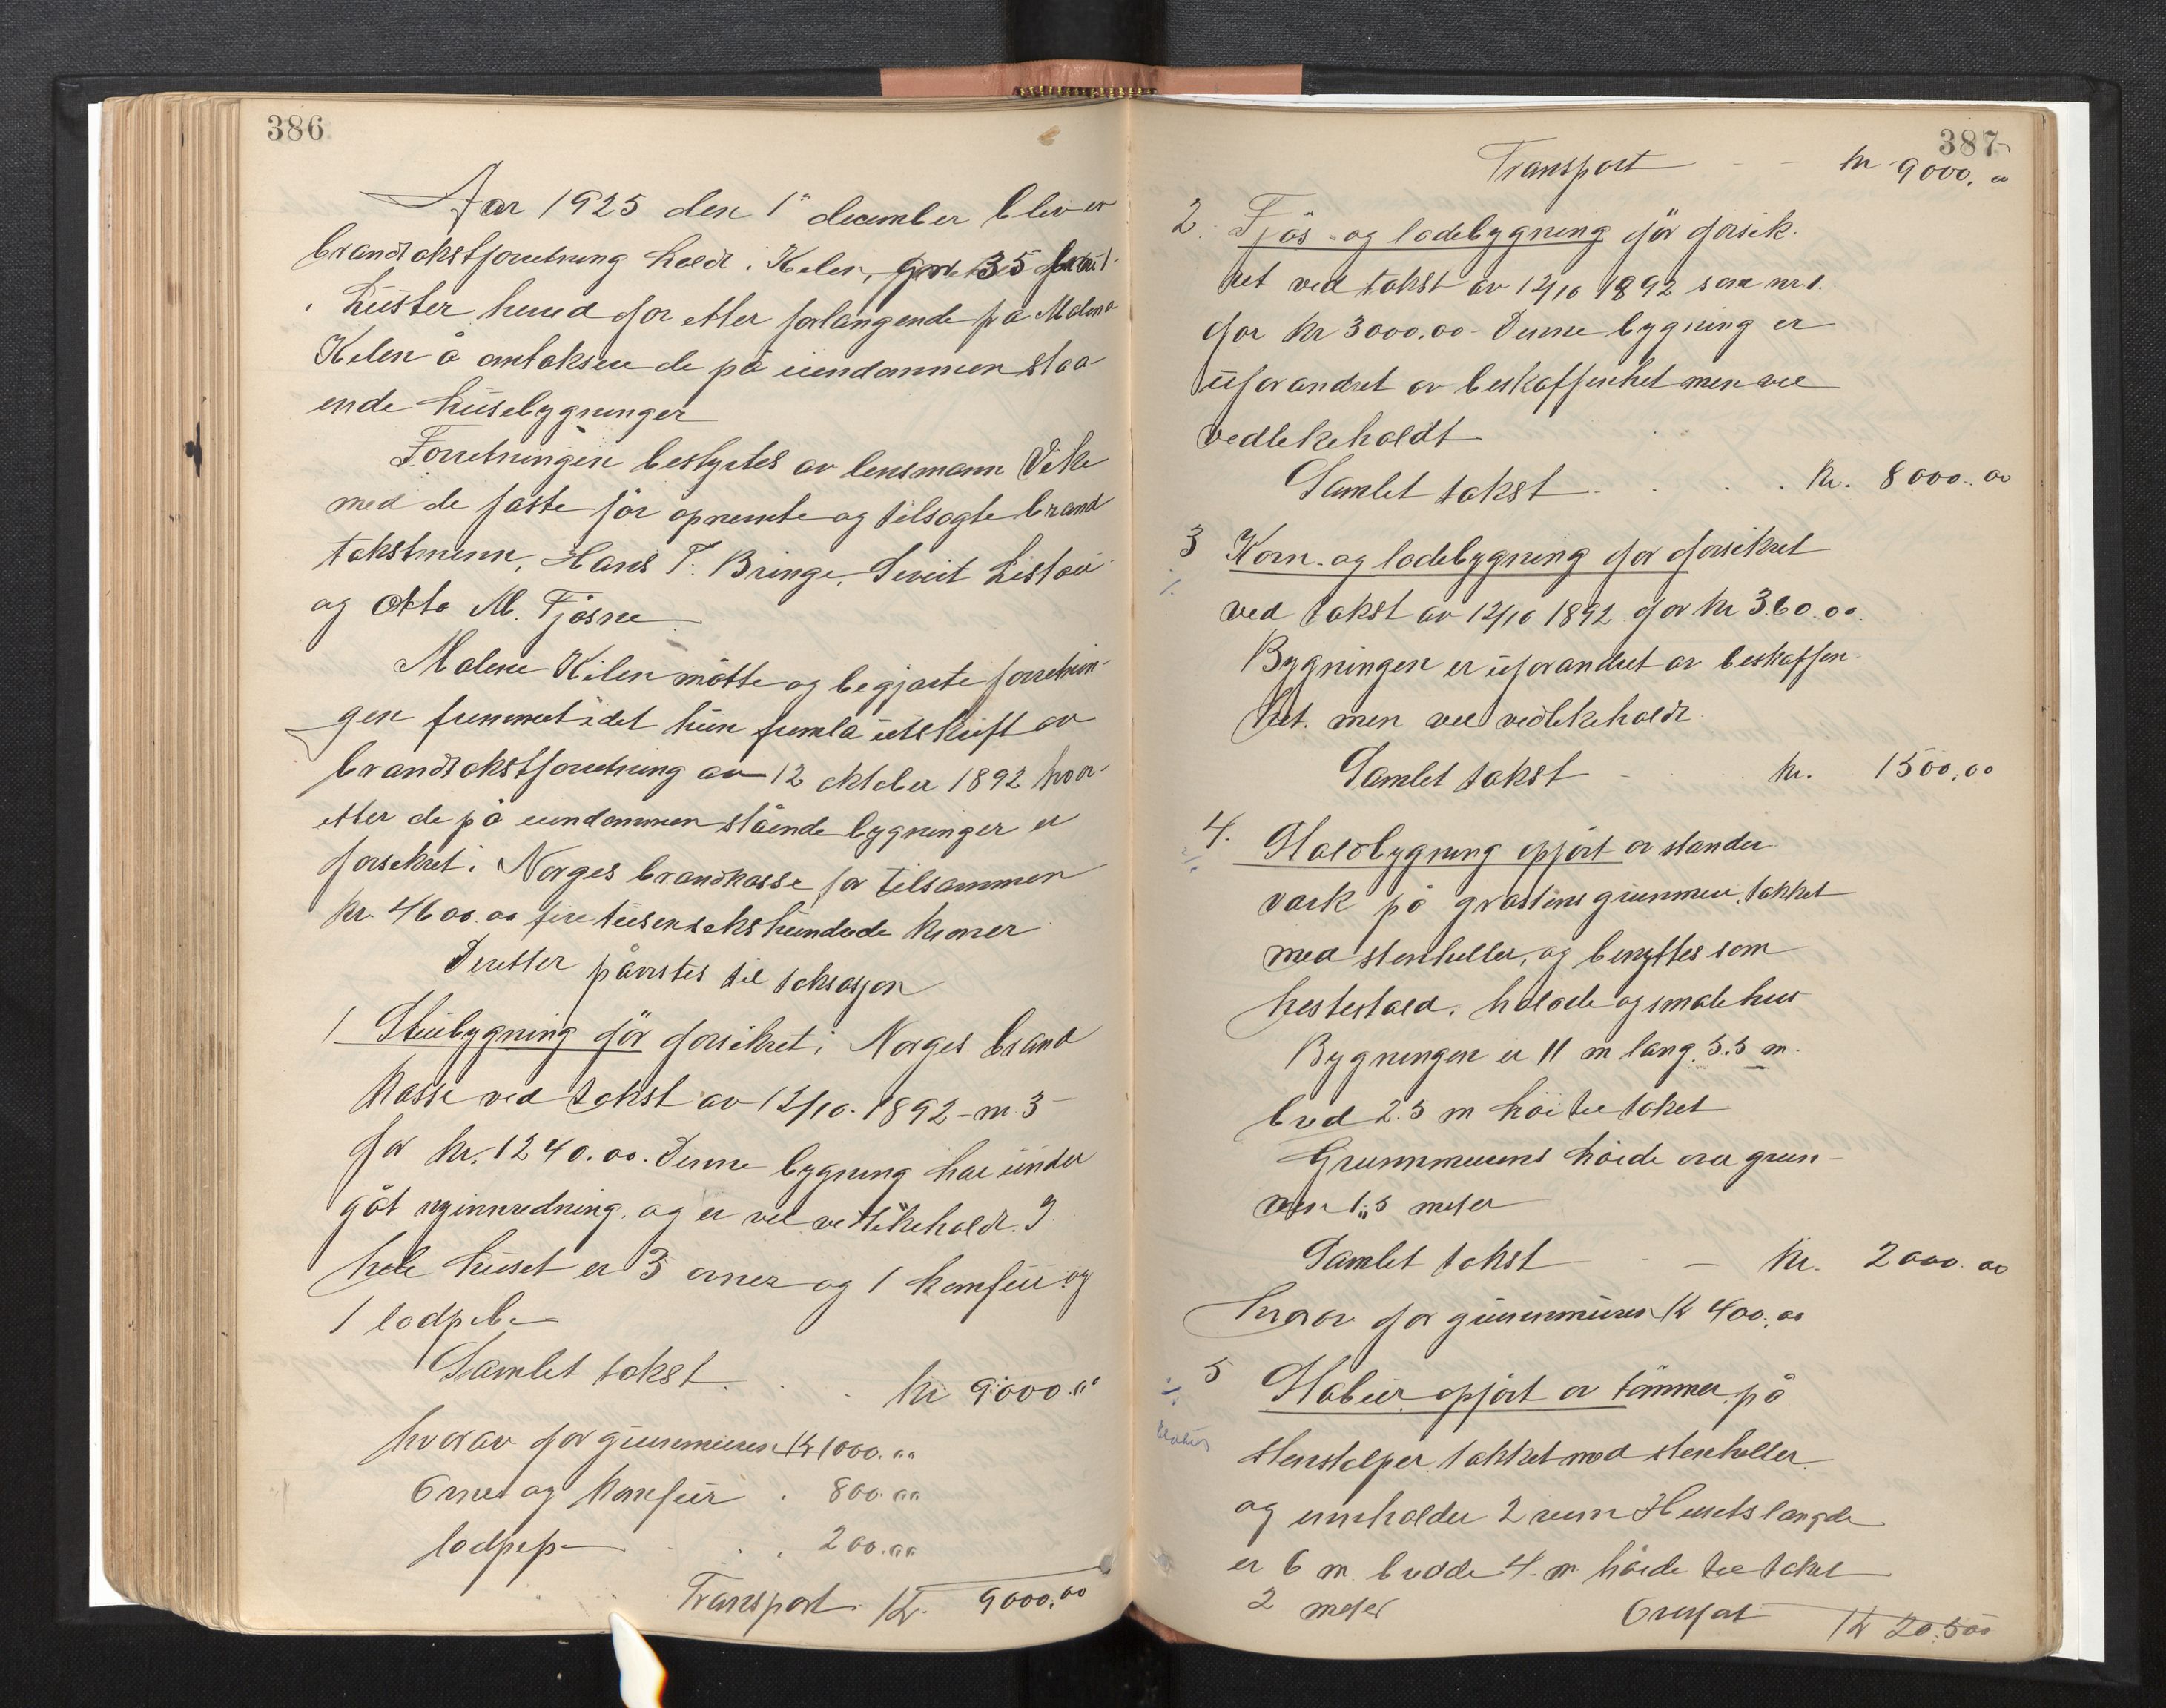 386
Aar 1925 den 1" december blev er
brandtakstforretning holdt i Kilen, gnr 35 brnr 1
i Luster herred for etter forlangende fra Malene
Kilen å omtaksere de på eiendommen staa-
ende husebygninger
Forretningen bestyrtes av lensmann Vike
med de faste før opnevnte og tilsagte brand
takstmenn, Hans T. Bringe, Sivert Listou
og Otto M. Fjøsne
Malene Kilen møtte og begjærte forretnin-
gen fremmet idet hun fremla utskrift av
brandtakstforretning av 12 oktober 1892 hvor-
etter de på eiendommen stående bygninger er
forsikret i Norges brandkasse for tilsammen
kr. 4600.00 fire tusen seks hundrede kroner
Deretter påvistes til taksasjon
1 Stuebygning før forsikret i Norges brand
kasse ved takst av 12/10. 1892 - nr. 3
for kr. 1240.00. Denne bygning har under
gåt nyinnredning, og er vel vedlikeholdt. I
hele huset er 3 ovner og 1 komfur og
1 lodpibe
Samlet takst . . kr 9000.00
hvorav for grunnmuren kr 1000.00
Ovner og komfur . 800.00
lodpipe . . 200.00
Transport kr. 9000.00
387
Transport - - kr 9000.00
2. Fjøs- og ladebygning før forsik-
ret ved takst av 12/10 1892 som nr 1.
for kr 3000.00 - Denne bygning er
uforandret av beskaffenhet men vel
vedlikeholdt
Samlet takst . . . . kr. 8000.00
3 Korn- og ladebygning før forsikret
ved takst av 12/10 1892 for kr 360.00.
Bygningen er uforandret av beskaffen-
het. men vel vedlikeholdt
Samlet takst - kr. 1500.00
4. Staldbygning opført av stander
værk på gråstens grunnmur, takket
med stenheller, og benyttes som
hestestald, hølade og smalehus
Bygningen er 11 m lang 5.5 m.
bred 2.5 m høi til taket
Grunnmurens høide over grun-
nen 1,5 meter
Samlet takst - kr. 2000.00
hvorav for grunnmuren kr 400.00
5 Stabur opført av tømmer på
stenstolper takket med stenheller
og innholder 2 rum Husets længde
er 6 m. bredde 4 m høide til taket
2 meter Overført kr 20.500